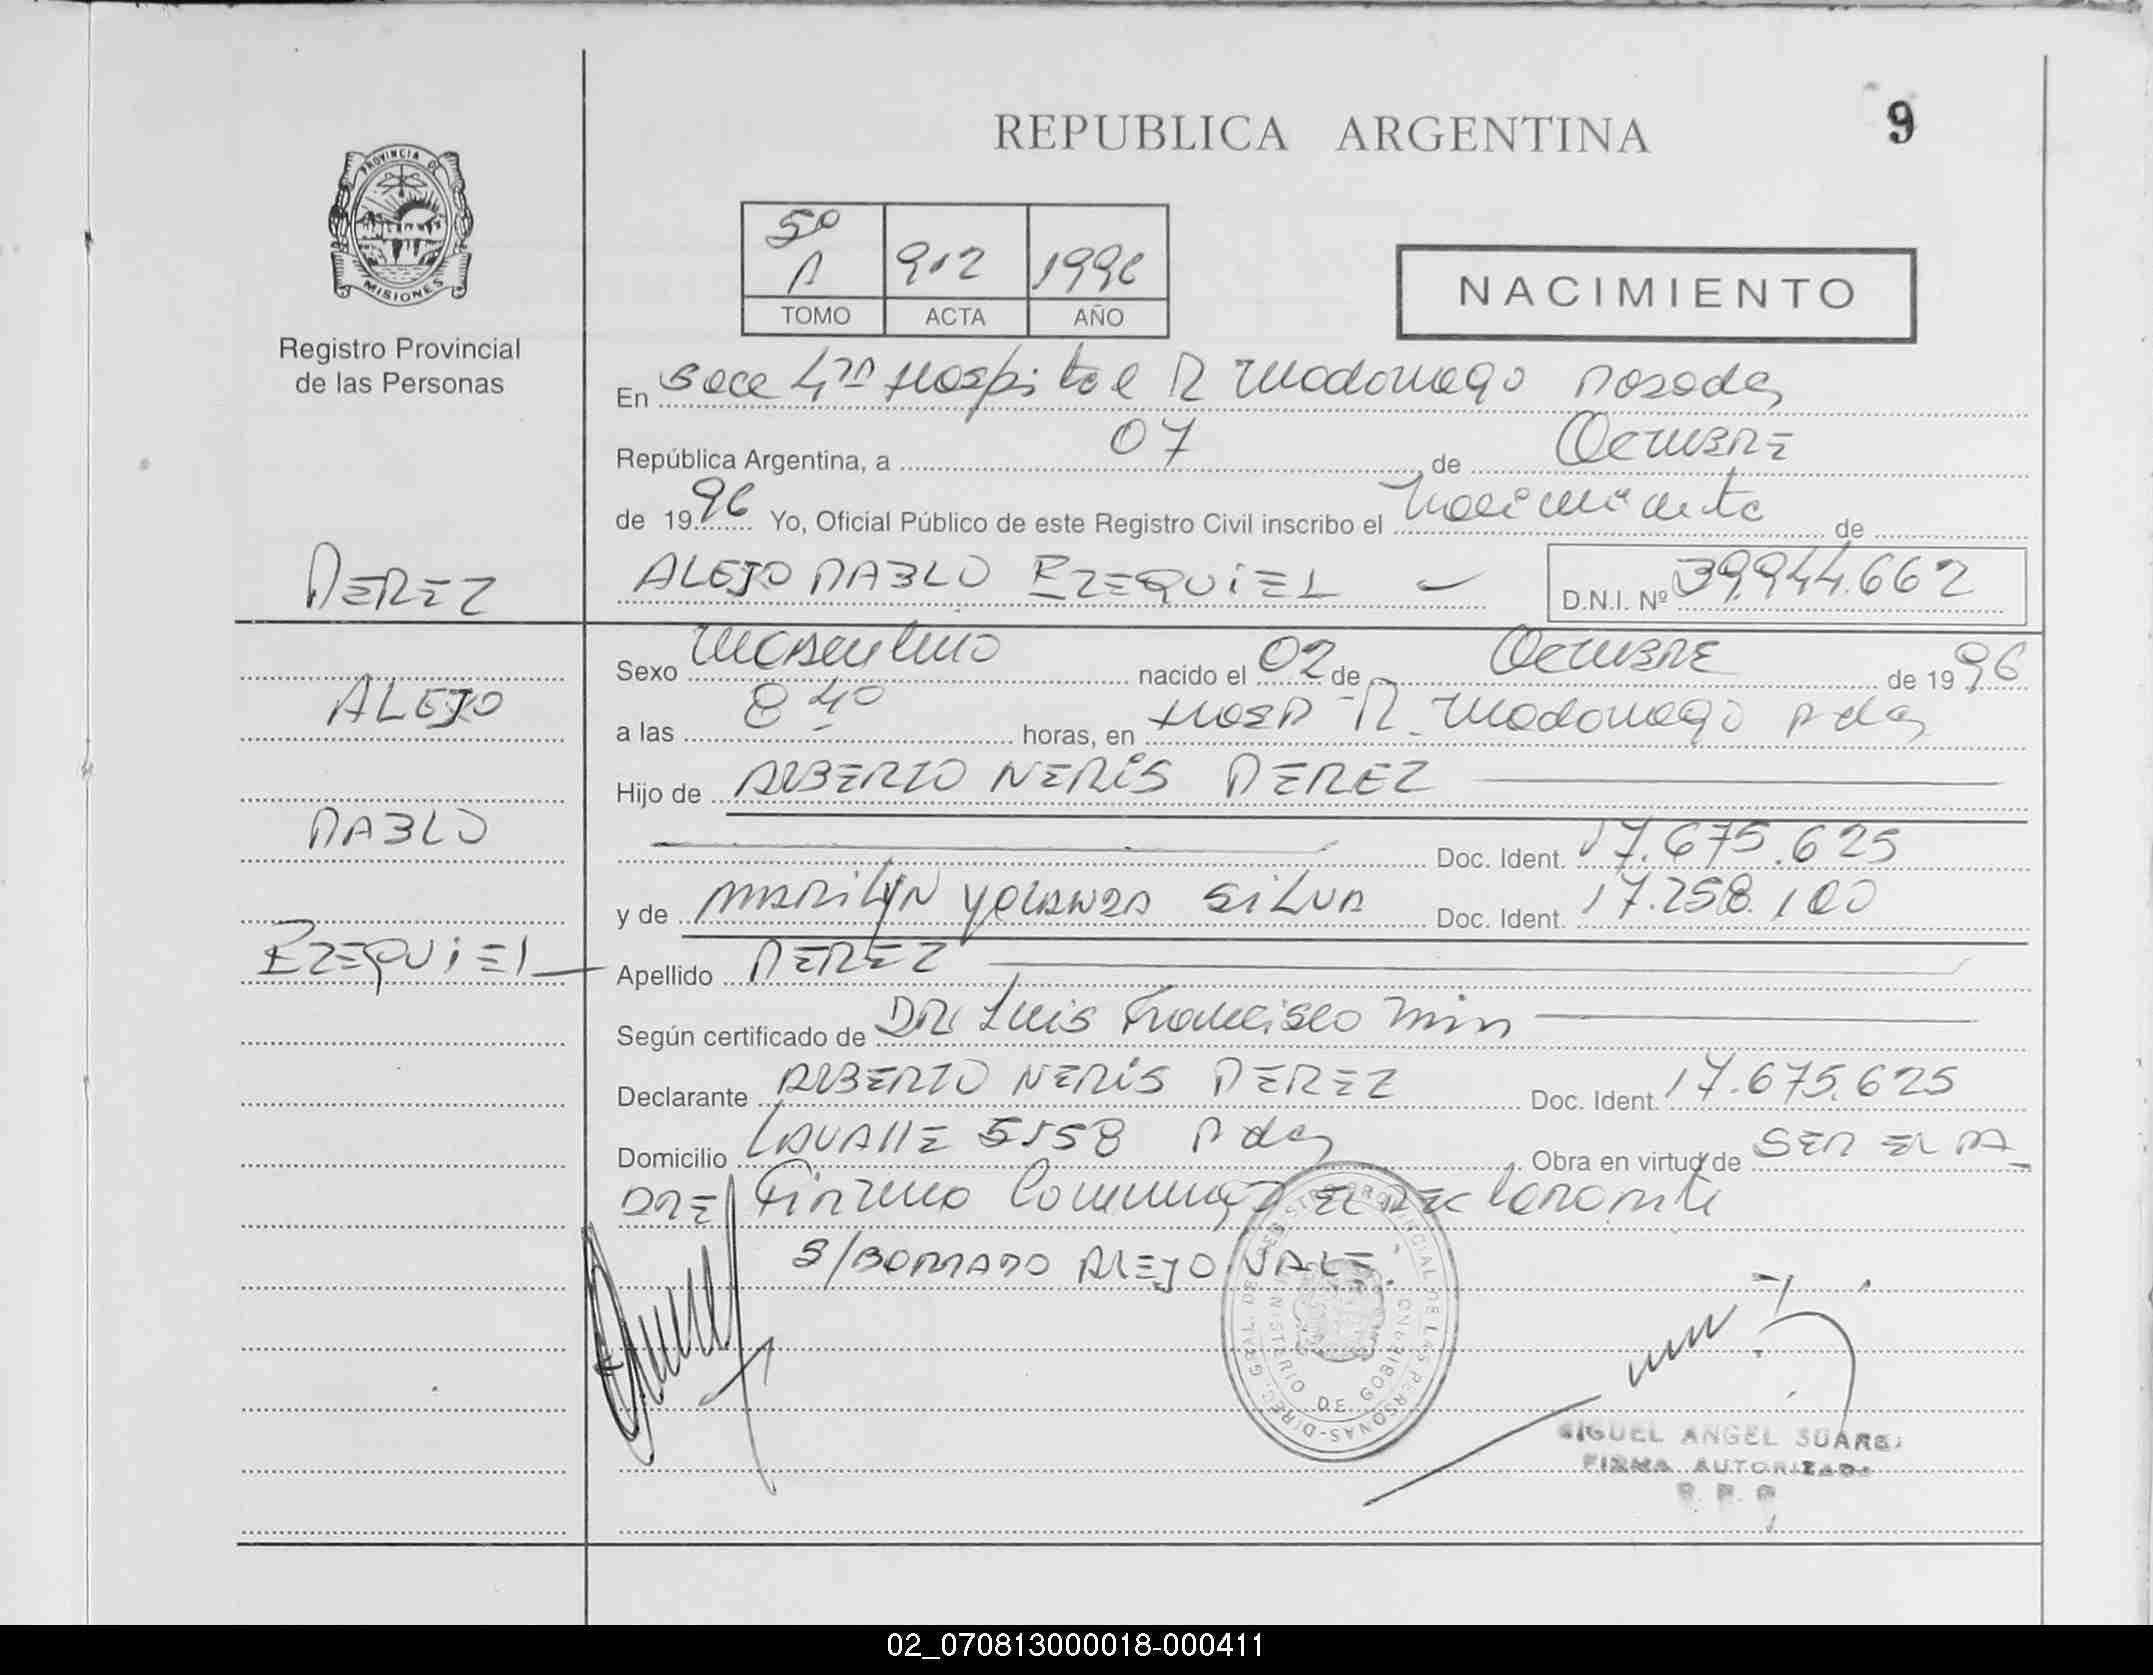 REPUBLICA ARGENTINA
9
PROVINCIA DE
MISIONES
Registro Provincial
de las Personas
5º
A 912 1996
TOMO ACTA AÑO
NACIMIENTO
En Secc 4ta Hospital R Madariaga Posadas
República Argentina, a 07 de Octubre
de 1996 Yo, Oficial Público de este Registro Civil inscribo el Nacimiento de
PEREZ
ALEJO PABLO EZEQUIEL
D.N.I. Nº 39.944.662
ALEJO
PABLO
EZEQUIEL
Sexo Masculino nacido el 02 de Octubre de 1996
a las 8 40 horas, en Hosp R. Madariaga Pdas
Hijo de ALBERTO NERIS PEREZ
Doc. Ident. 17.675.625
y de MARILYN YOLANDA SILVA Doc. Ident. 17.258.100
Apellido PEREZ
Según certificado de DR Luis Francisco Min
Declarante ALBERTO NERIS PEREZ Doc. Ident. 17.675.625
Domicilio LAVALLE 5158 Pdas Obra en virtud de SER EL PA
DRE Firman Conmigo EL DEClarante
S/BORRADO ALEJO VALE.
REGISTRO PROVINCIAL DE LAS PERSONAS-DIREC. GRAL. DE
MINISTERIO DE GOBIERNO
MIGUEL ANGEL SUAREZ
FIRMA AUTORIZADA
02_070813000018-000411